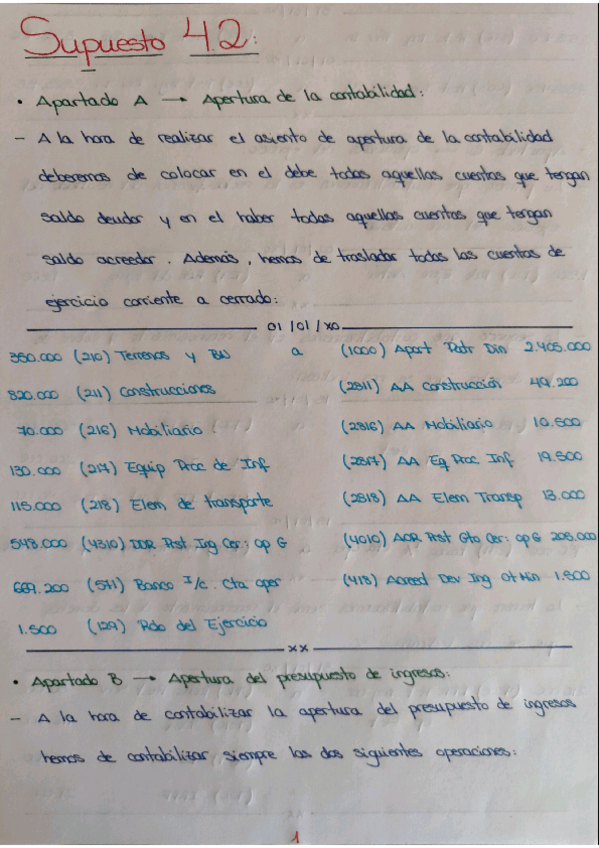 Supuesto 4.2:
• Apartado A → Apertura de la contabilidad:
- A la hora de realizar el asiento de apertura de la contabilidad
deberemos de colocar en el debe todas aquellas cuentas que tengan
saldo deudor y en el haber todas aquellas cuentas que tengan
saldo acreedor. Además, hemos de trasladar todas las cuentas de
ejercicio corriente a cerrado:
01/01/X0
350.000 (210) Terrenos y BN a (1000) Apart Patr Din 2.405.000
820.000 (211) Construcciones (2811) AA Construcción 49.200
70.000 (216) Mobiliario (2816) AA Mobiliario 10.500
130.000 (217) Equip Proc de Inf (2817) AA Eq Proc Inf 19.500
115.000 (218) Elem de transporte (2818) AA Elem Transp 13.000
548.000 (4310) DDR Prst Ing Cer: op G (4010) AOR Prst Gto Cer: op G 205.000
669.200 (571) Banco I/c. Cta oper (418) Acreed Dev Ing ot Min 1.500
1.500 (129) Rdo del Ejercicio
XX
• Apartado B → Apertura del presupuesto de ingresos:
- A la hora de contabilizar la apertura del presupuesto de ingresos
hemos de contabilizar siempre las dos siguientes operaciones:
1